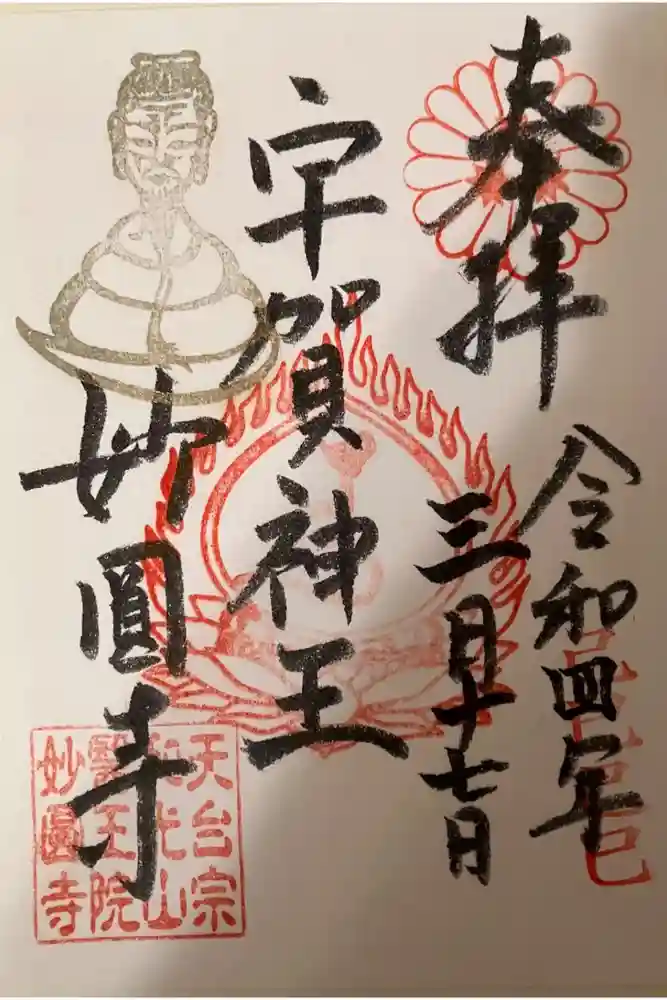 奉拝
令和四年
三月十七日
宇賀神王
妙圓寺
天台宗
山
醫王院
妙圓寺